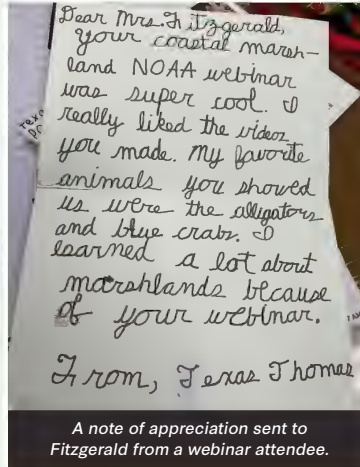 Dear Mrs. Fitzgerald,
your coastal marsh-
land NOAA webinar
was super cool. I
really liked the videos
you made. My favorite
animals you showed
us were the alligators
and blue crabs. I
learned a lot about
marshlands because
of your webinar.
From, Texas Thomas
A note of appreciation sent to
Fitzgerald from a webinar attendee.